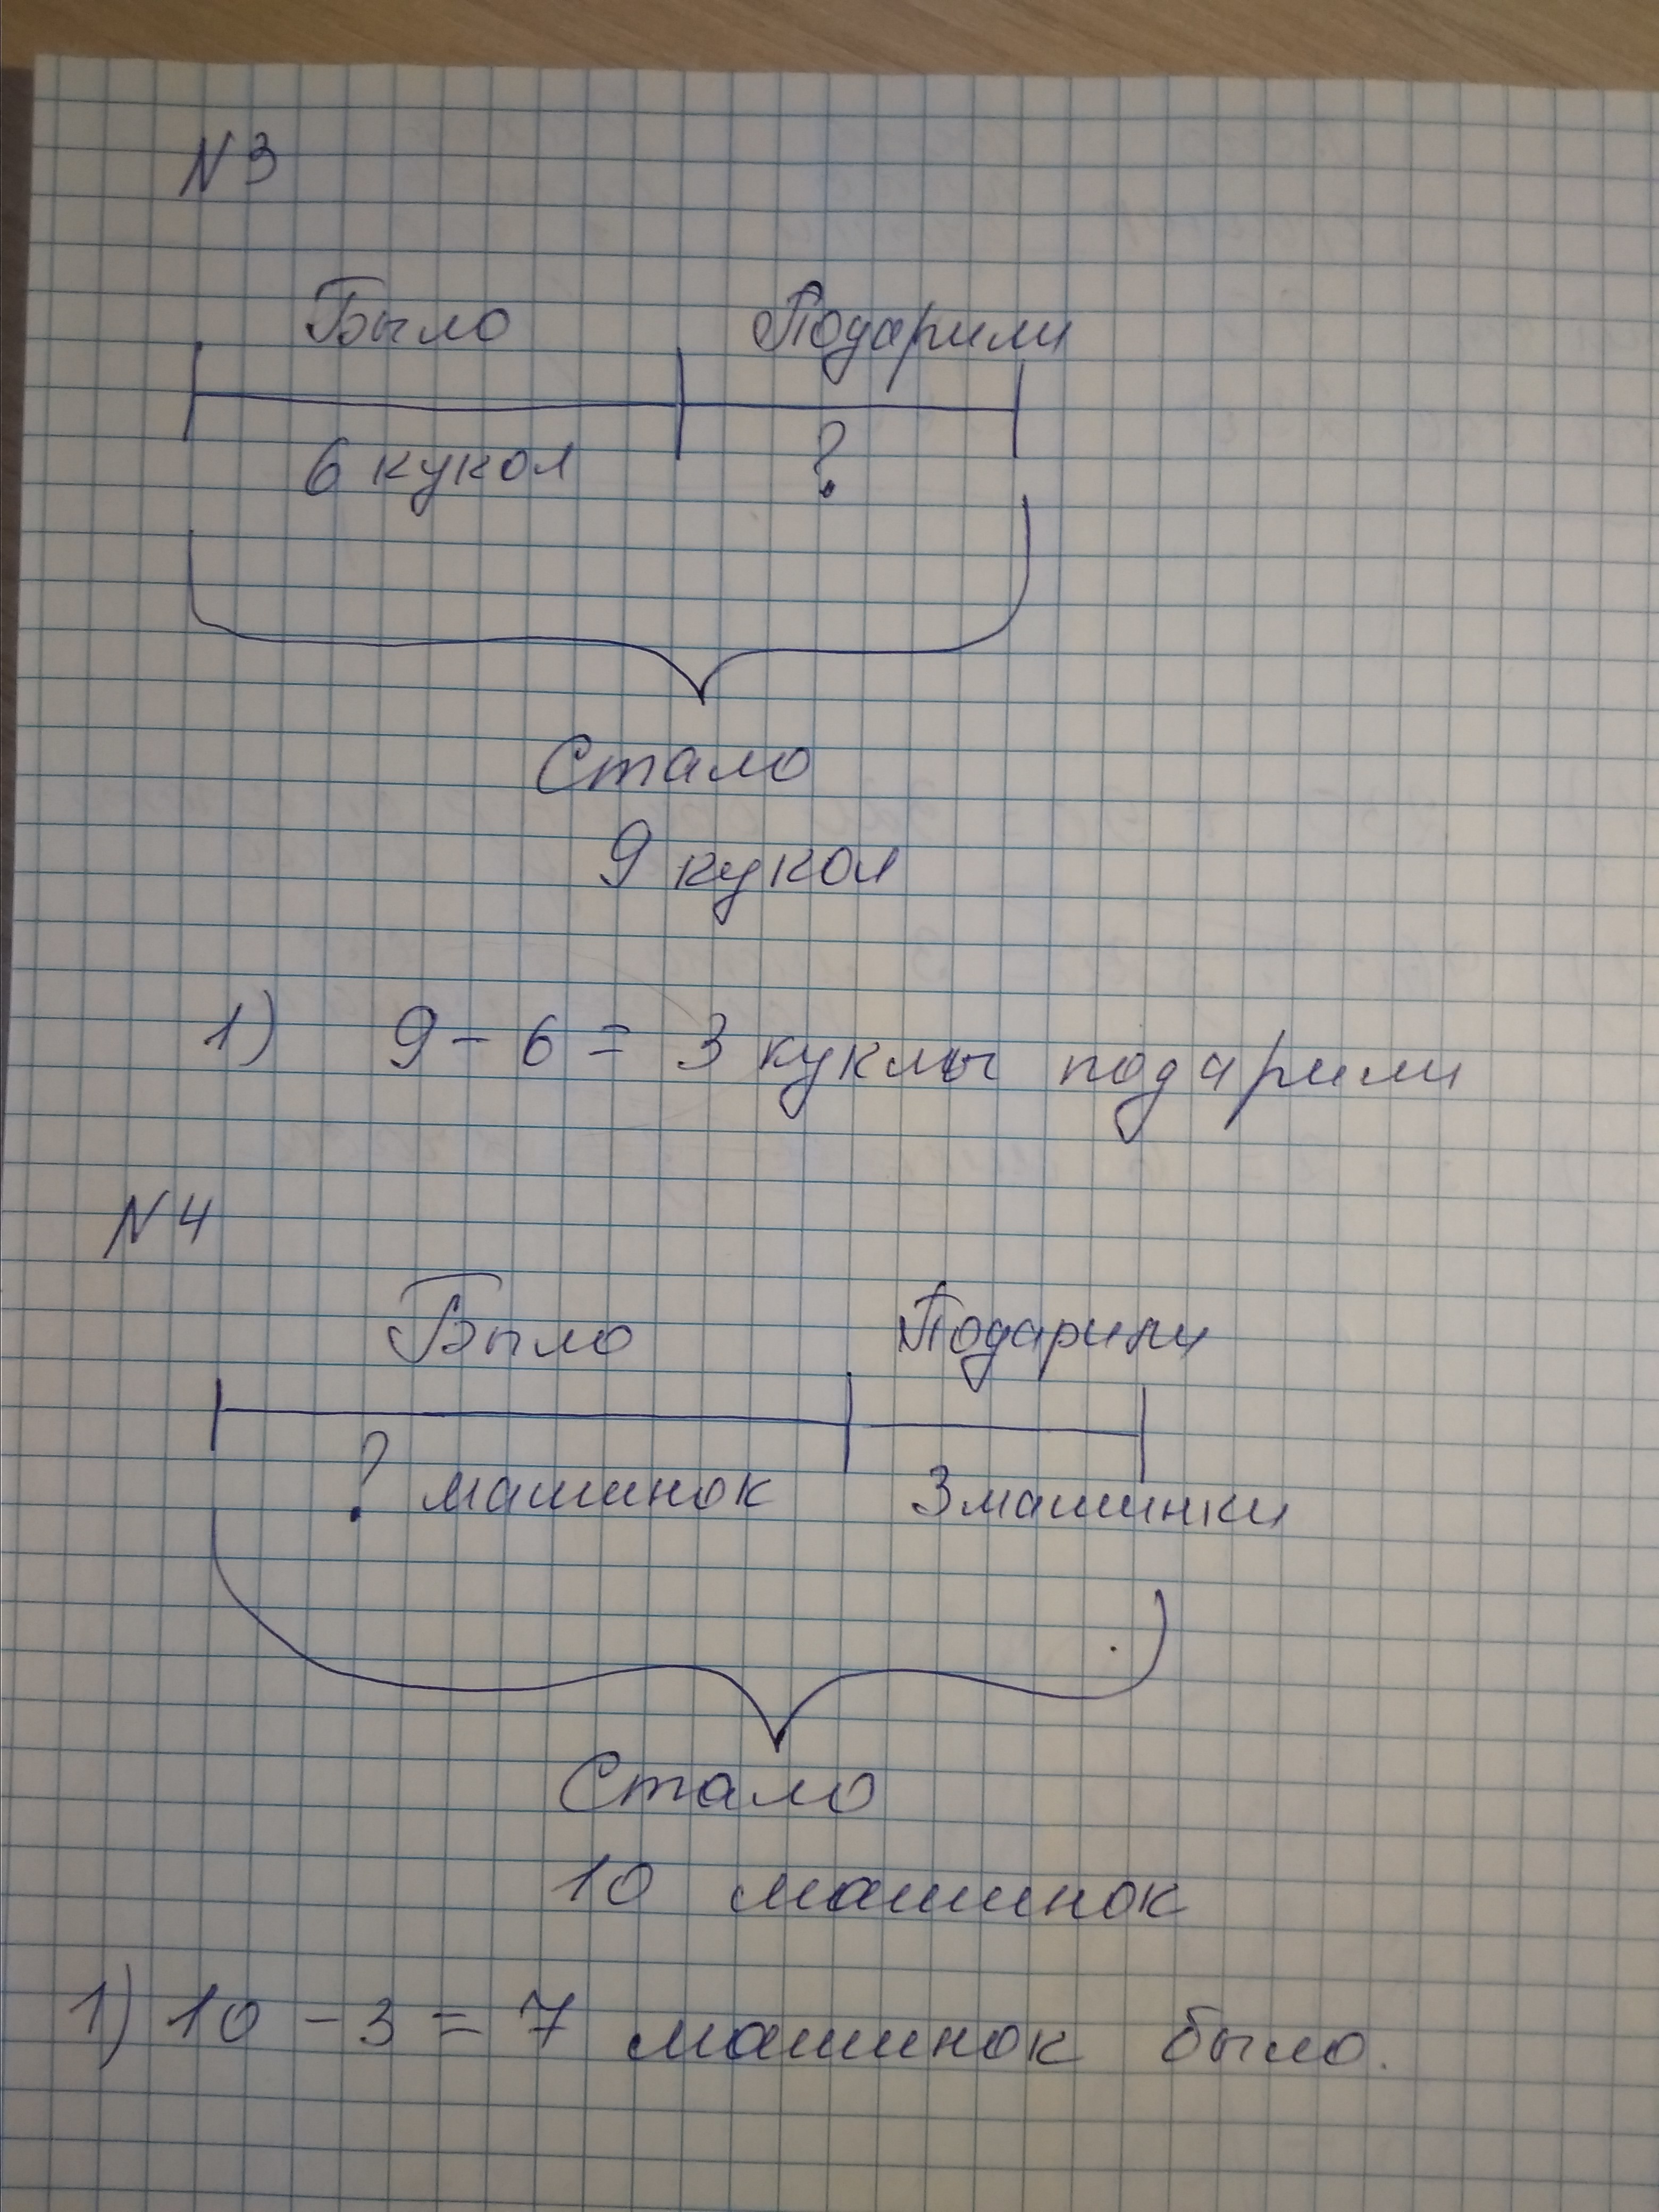 N 3
Было Подарили
6 кукол ?
Стало
9 кукол
1) 9 - 6 = 3 куклы подарили
N 4
Было Подарили
? машинок 3 машинки
Стало
10 машинок
1) 10 - 3 = 7 машинок было.